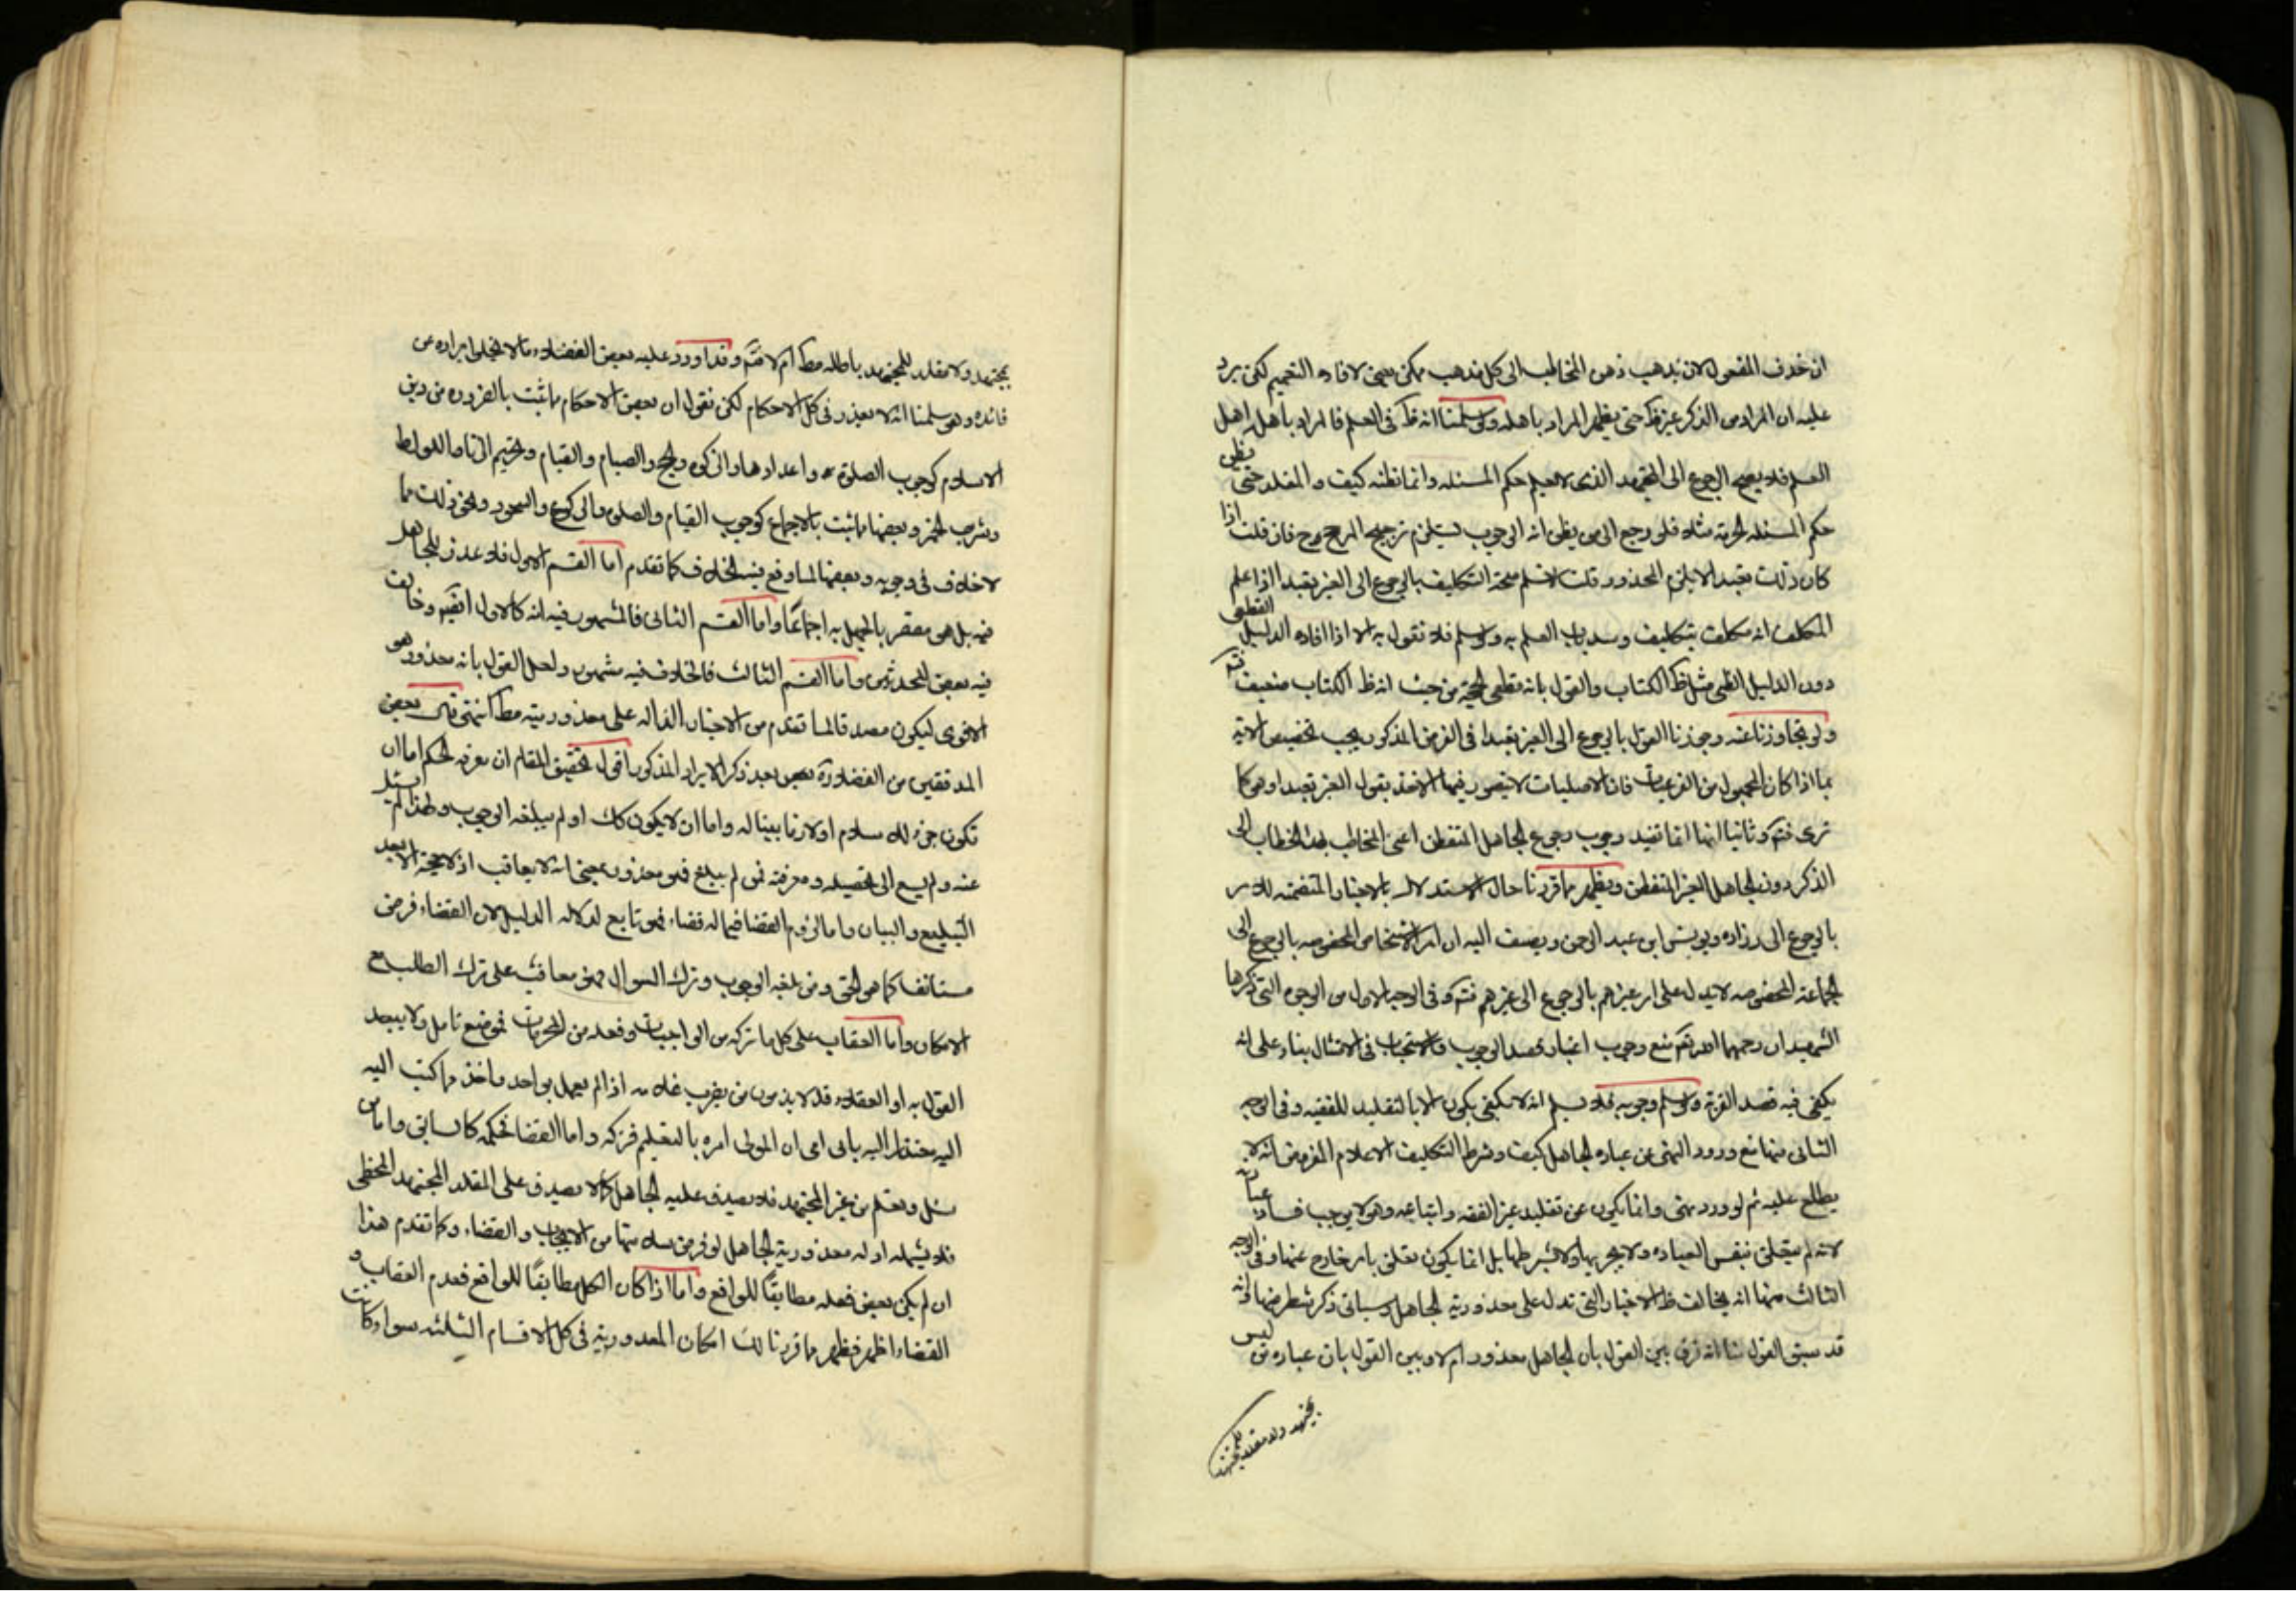 ان حذف المفعول لان يذهب ذهن المخاطب الى كل مذهب ممكن يعنى لافاده التعميم لكن يرد
عليه ان المراد من الذكر غير ظ حتى يظهر المراد باهله ولو سلمنا انه ظ فى العلم فالمراد باهل اهل
العلم فلا يصح الرجوع الى المجتهد الذى لا يعلم حكم المسئله وانما يظنه كيف و المقلد حتى يظن
حكم المسئله الحرمة مثلا فلو رجع الى من يظن انه الوجوب يستلزم ترجيح المرجوح فان قلت اذا
كان ذلك تعبدا لا يلزم المحذور قلت لا نسلم صحة التكليف بالرجوع الى الغير تعبدا الا اذا علم
المكلف انه مكلف بتكليف وسد باب العلم به ولو سلم فلا نقول به الا اذا افاده الدليل القطعى
دون الدليل الظنى مثل ظ الكتاب والقول بانه قطعى الحجية من حيث انه ظ الكتاب ضعيف
ولو تجاوزنا عنه وجوزنا القول بالرجوع الى الغير تعبدا فى الفرض المذكور يجب تخصيص الاية
بما اذا كان المجهول من الفرعيات فان الاصليات لا يتصور فيها الاخذ بقول الغير تعبدا وهو كما
ترى فتم و ثانيا انها انما تفيد وجوب رجوع الجاهل المتفطن اعنى المخاطب بهذا الخطاب الى
الذكر دون الجاهل الغير المتفطن ويظهر مما قررنا حال الاستدلال بالاخبار المتضمنه للامر
بالرجوع الى زراره ويونس ابن عبد الرحمن ويضف اليه ان امر الاشخاص المخصوصه بالرجوع الى
الجماعة المخصوصه لا يدل على امر غيرهم بالرجوع الى غيرهم فتم و فى الوجه الاول من الوجوه التى ذكرها
الشهيدان رحمهما الله تع منع وجوب اعتبار قصد الوجوب والاستحباب فى الامتثال بناء على انه
يكفى فيه قصد القربة ولو سلم وجوبه فلا نسلم انه لا يكفى بكون الا بالتقليد للفقيه وفى الوجه
الثانى منها منع ورود النهى عن عباده الجاهل كيف وشرط التكليف الاعلام المفروض انه لا
يطلع عليه ثم لو ورد نهى وانما يكون عن تقليد غير الفقه واتباعه وهو لا يوجب فساد عبادته
لانه لم يتعلق بنفس العباده ولا بجزيها ولا بشرطها بل انما يكون تعلق بامر خارج عنها وفى الوجه
الثالث منها انه يخالف ظ الاخبار التى تدل على معذورية الجاهل وسياتى ذكر شطر منها
قد سبق القول منا انه فرق بين القول بان الجاهل معذور ام لا و بين القول بان عباده من ليس
بمجتهد ولا مقلد للمجتهد
بمجتهد ولا مقلد للمجتهد باطله مط ام لا فتم وقد اورد عليه بعض الفضلاء ما لا يخلوا ايراده عن
فائده وهو سلمنا انه لا يعذر فى كل الاحكام لكن نقول ان بعض الاحكام ما ثبت بالضروره من دين
الاسلام كوجوب الصلوة واعدادها والزكوه والحج والصيام والقيام وتحريم الزنا واللواط
وشرب الخمر وبعضها ما ثبت بالاجماع كوجوب القيام والصلوه والركوع والسجود ونحو ذلك مما
لا خلاف فى وجوبه وبعضها لما وقع فيه الخلاف كما تقدم اما القسم الاول فلا عذر للجاهل
فيه بل هو مقصر بالجهل به اجماعًا واما القسم الثانى فالمشهور فيه انه كالاول ايضًا وخالف
فيه بعض المحدثين واما القسم الثالث فالخلاف فيه مشهور ولعل القول بانه معذور هو
الاقوى ليكون مصداقا لما تقدم من الاخبار الداله على معذوريته مط انتهى قال بعض
المدققين من الفضلاء بعد ذكر الايراد المذكور اقول تحقيق المقام ان معرفة الحكم اما ان
تكون جزء للاسلام اولازما بيناله واما ان لا يكون كك او لم يبلغه الوجوب ولهذا لم يسئل
عنه ولم يسع الى تحصيله ومعرفته فمن لم يبلغ فهو معذور بمعنى انه لا يعاقب اذ لا حجة الا بعد
التبليغ والبيان واما لزوم القضا فيما له قضاء فهو تابع لدلاله الدليل لان القضاء فرض
مستانف كما هو الحق ومن بلغه الوجوب وترك السوال فهو معاقب على ترك الطلب مع
الامكان واما العقاب على كل ما تركه من الواجبات وفعله من المحرمات فموضع تامل ولا يبعد
القول به او العقلاء قد لا يذمون من يضرب غلامه اذا لم يعمل بواحد واخذ مما كتب اليه
اليه معتذرا اليه بانى امى ان المولى امره بالتعليم فتركه واما القضا فحكمه كالسابق واما من
سئل وتعلم من غير المجتهد فلا يصدق عليه الجاهل كما لا يصدق على المقلد المجتهد المخطى
فلا يشمله ادله معذورية الجاهل لو فرض سلامتها من الايجاب والقضاء وكما تقدم هذا
ان لم يكن بعض فعله مطابقًا للواقع واما اذا كان الكل مطابقًا للواقع فعدم العقاب و
القضاء اظهر فظهر مما قررنا لك امكان المعذورية فى كل الاقسام الثلثه سواء كانت